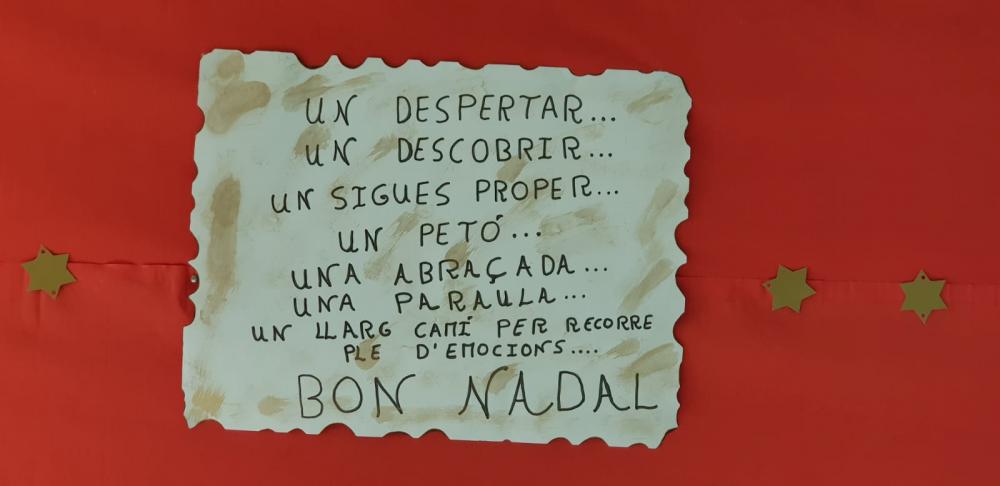 UN DESPERTAR...
UN DESCOBRIR...
UN SIGUES PROPER...
UN PETÓ...
UNA ABRAÇADA...
UNA PARAULA...
UN LLARG CAMÍ PER RECORRE
PLE D'EMOCIONS....
BON NADAL